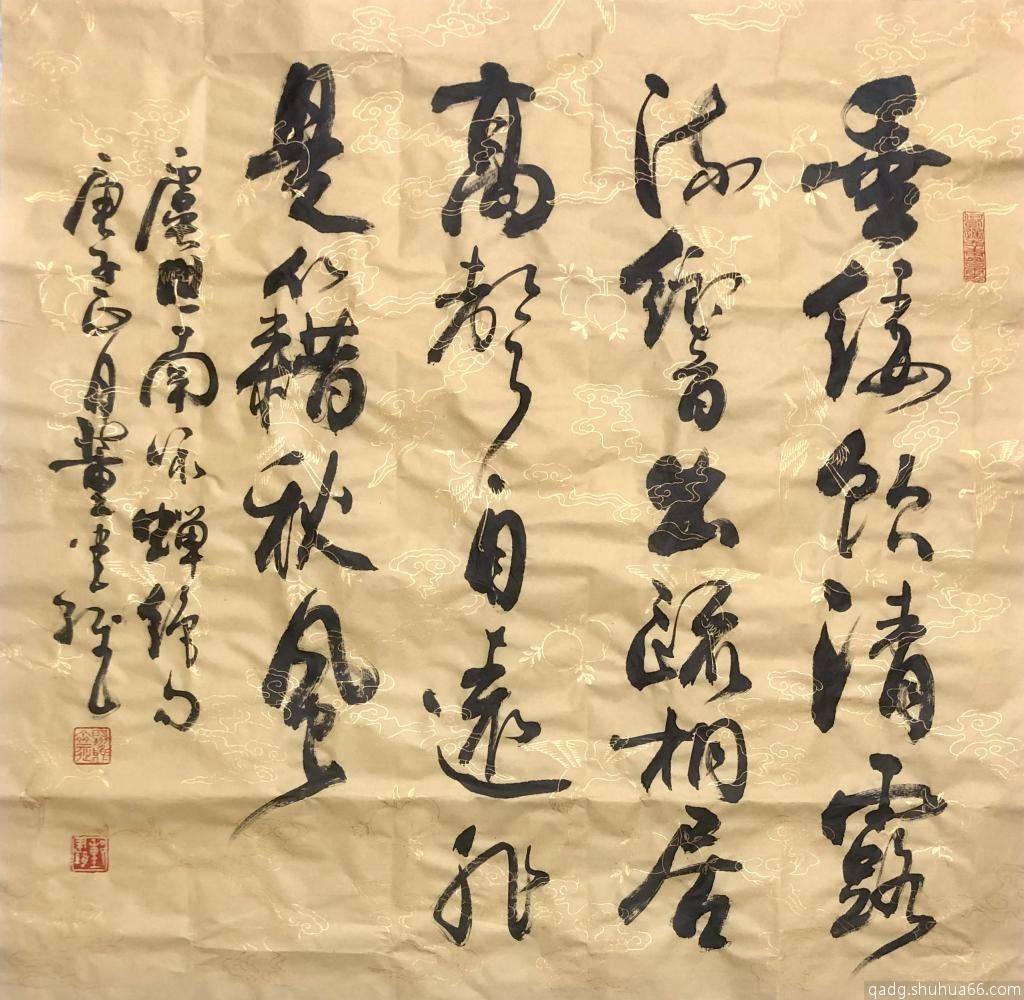 垂緌飲清露
流響出疏桐居
高聲自遠非
是藉秋風
虞世南咏蟬絕句
庚子正月董
qadg.shuhua66.com